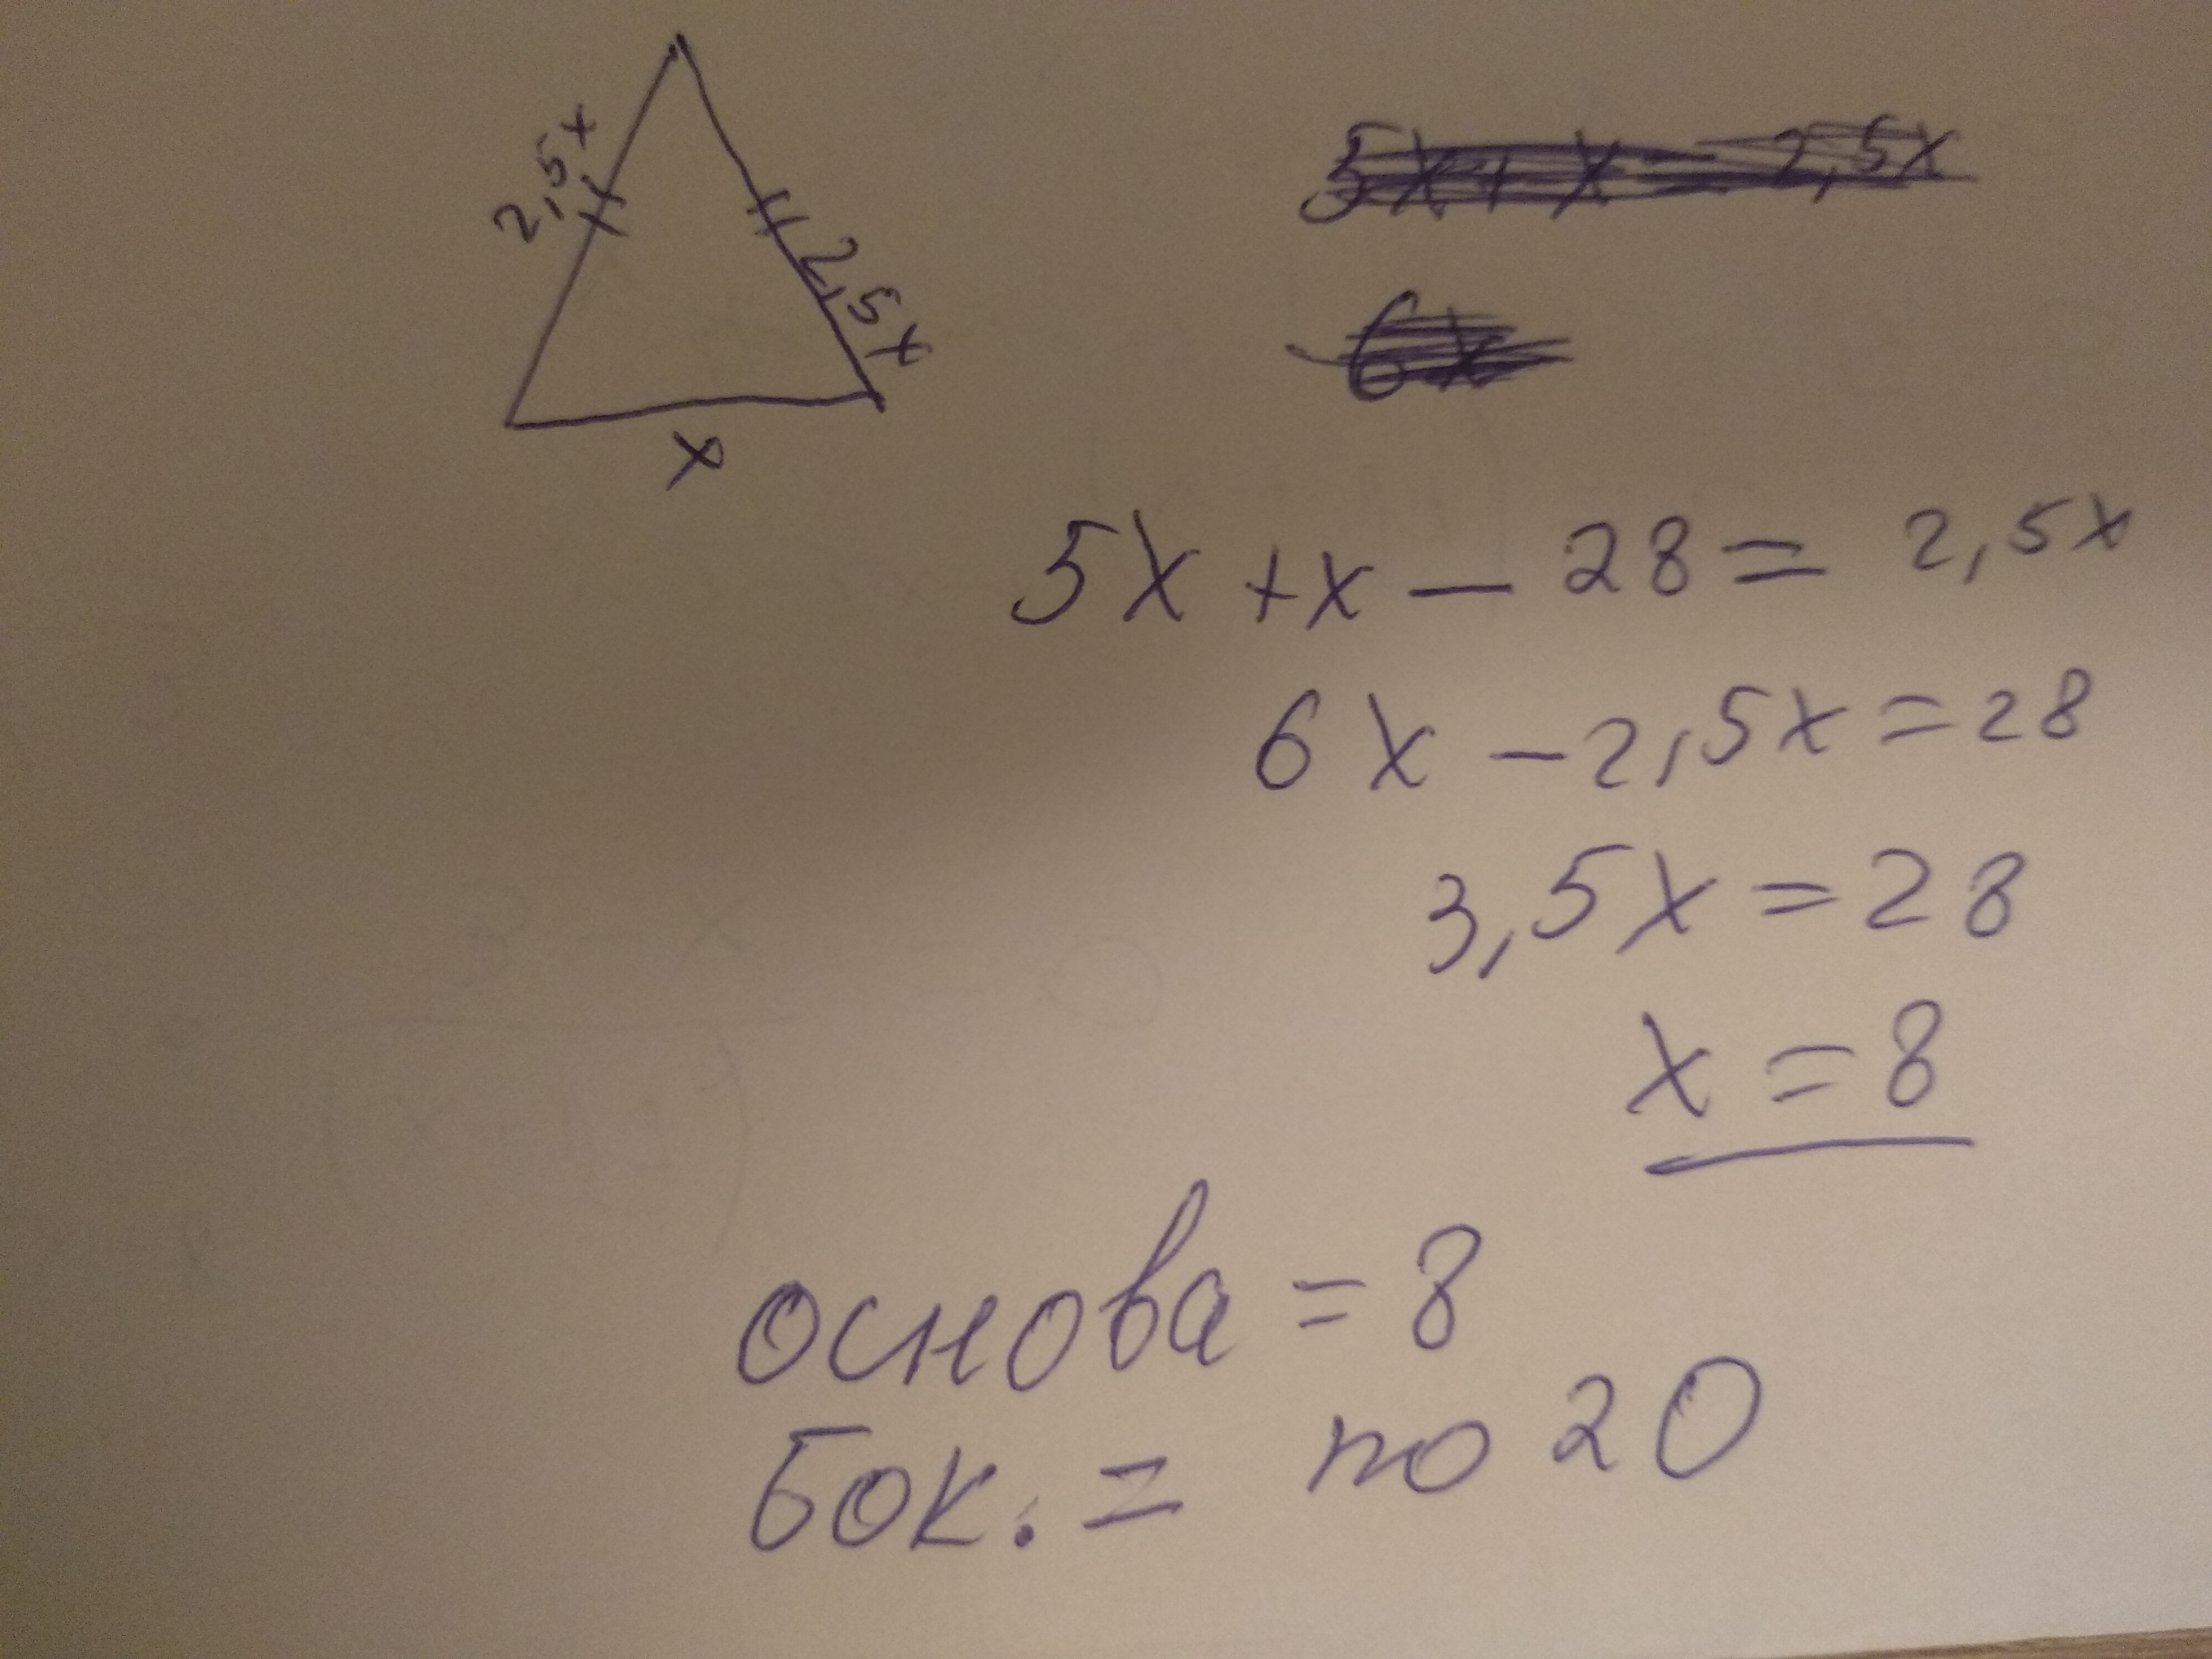 2,5x
2,5x
x
5x + x = 2,5x
6x
5x + x - 28 = 2,5x
6x - 2,5x = 28
3,5x = 28
x = 8
основа = 8
бок. = по 20